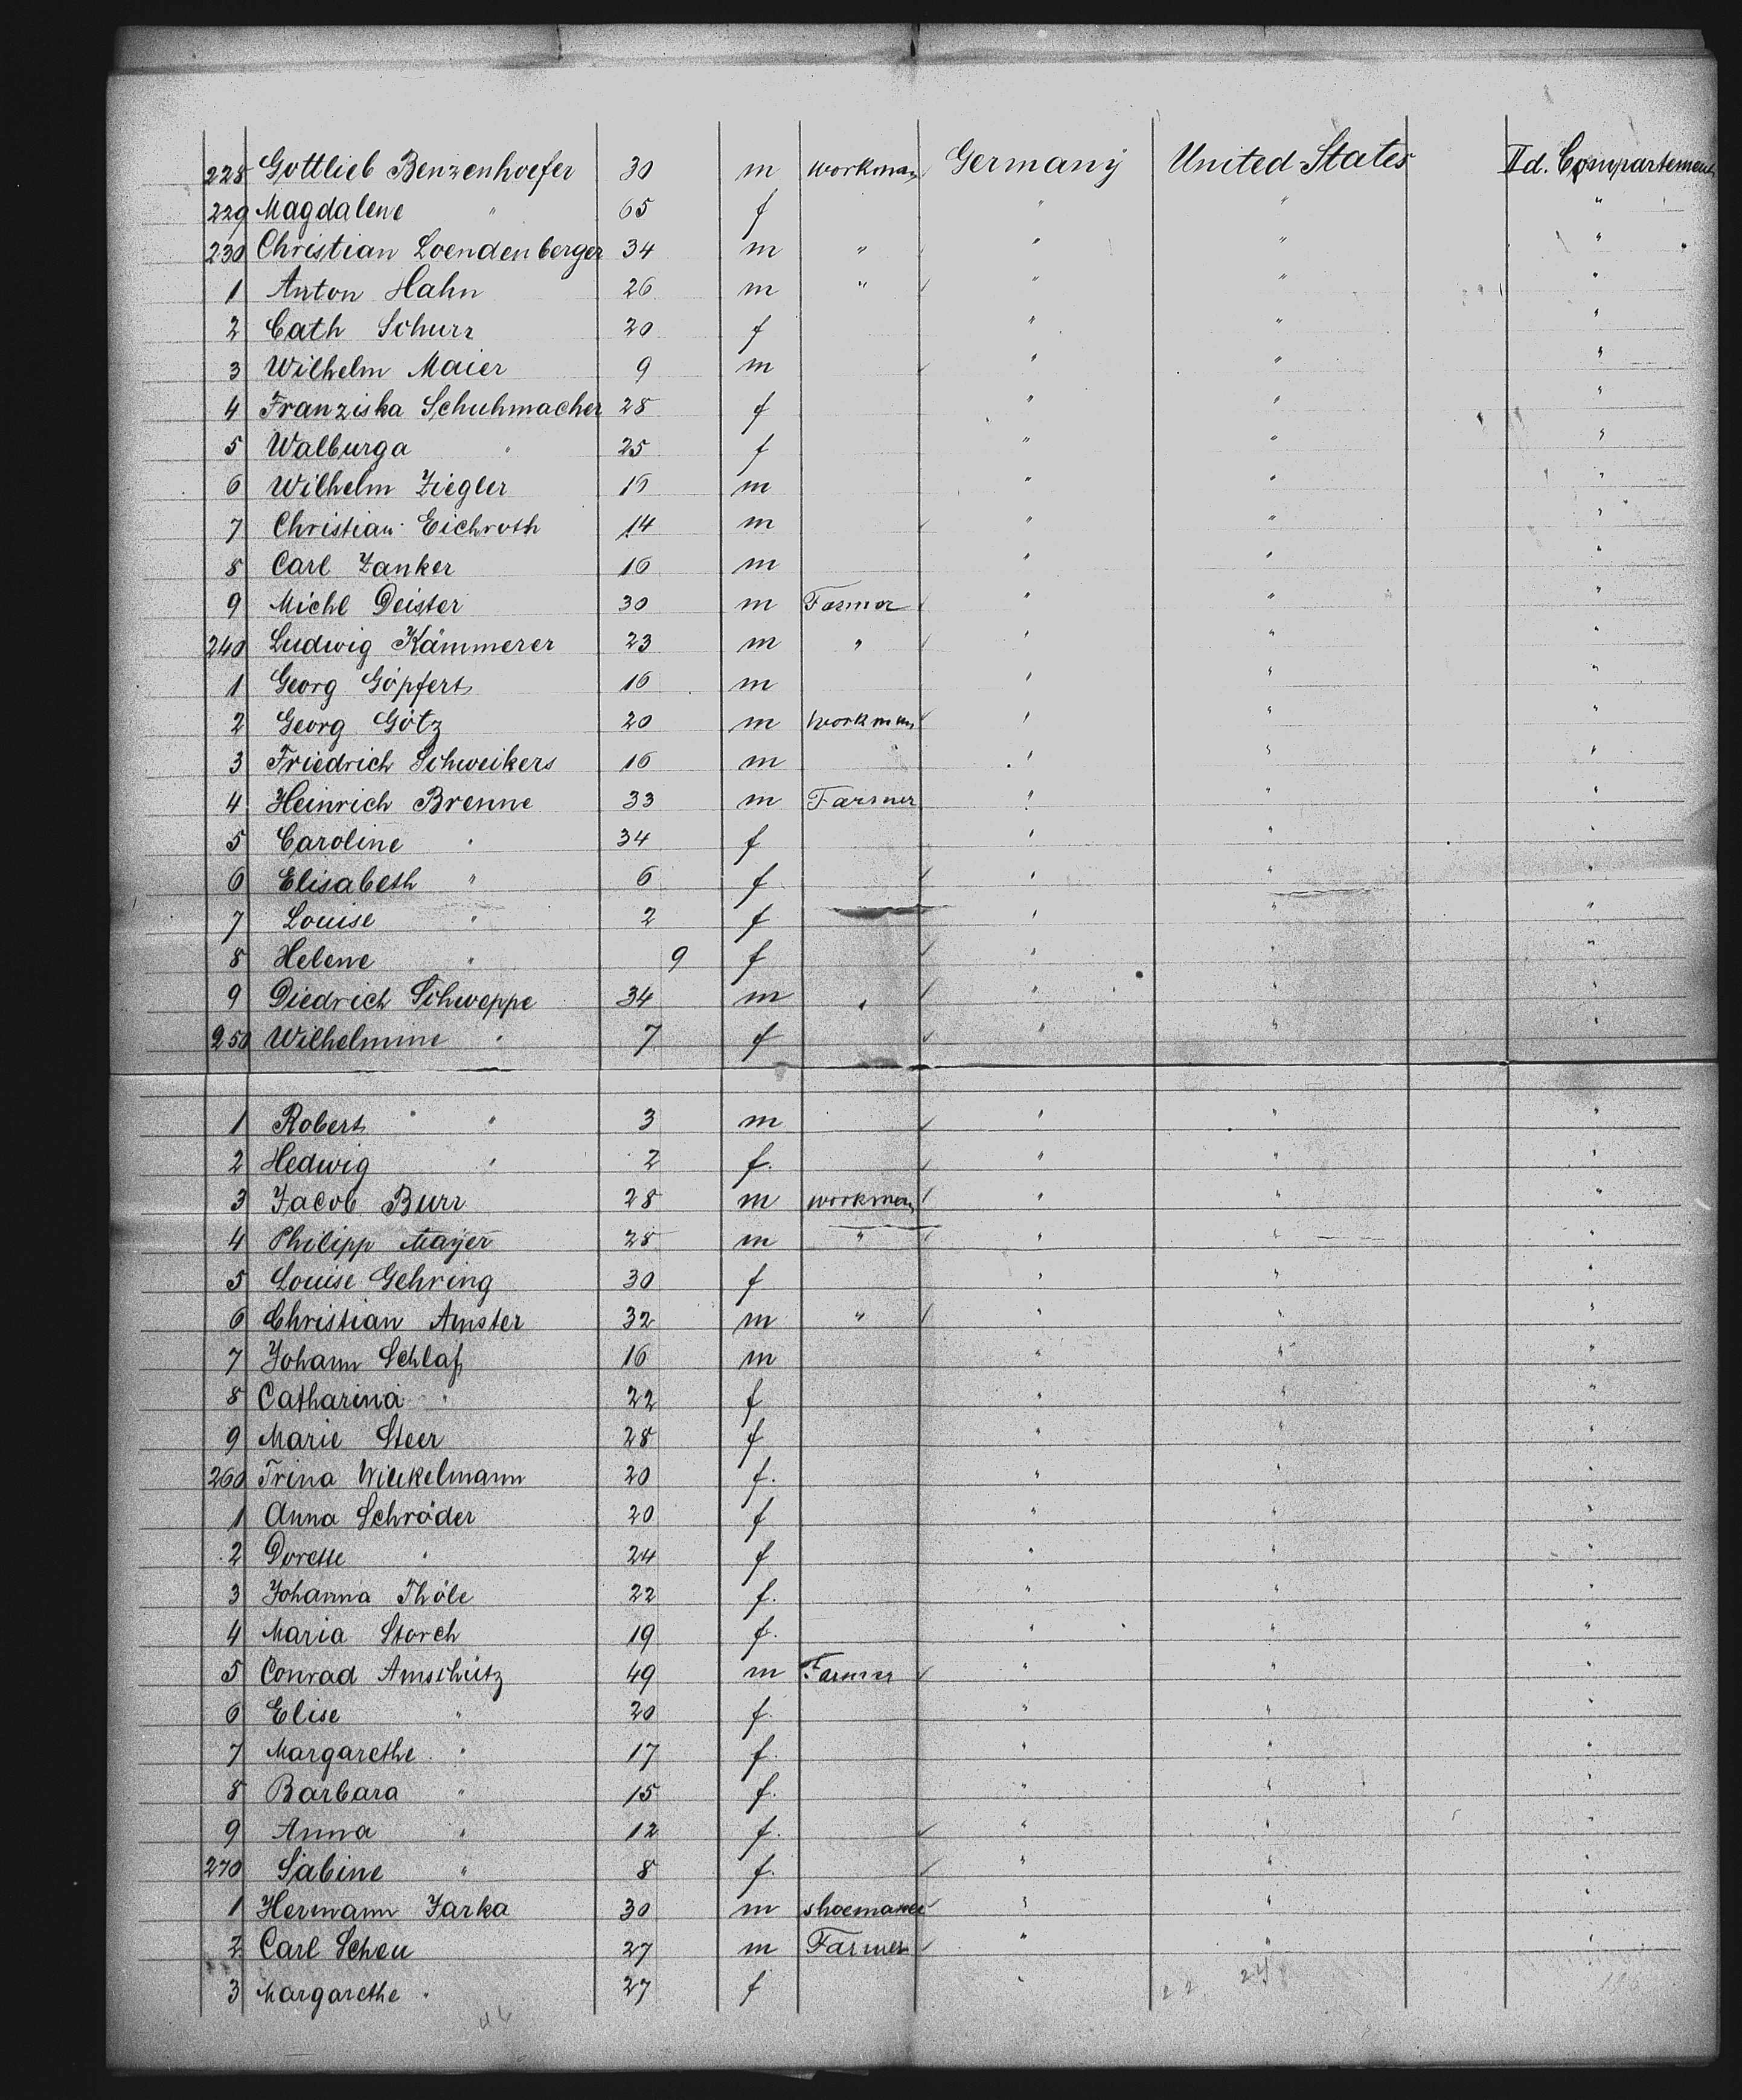 228 Gottlieb Benzenhoefer 30 m workman Germany United States IId. Compartement
229 Magdalene " 65 f " " "
230 Christian Loendenberger 34 m " " " "
1 Anton Hahn 26 m " " " "
2 Cath Schurr 20 f " " "
3 Wilhelm Maier 9 m " " "
4 Franziska Schuhmacher 28 f " " "
5 Walburga " 25 f " " "
6 Wilhelm Ziegler 16 m " " "
7 Christian Eichroth 14 m " " "
8 Carl Zanker 16 m " " "
9 Michl Deister 30 m Farmer " " "
240 Ludwig Kämmerer 23 m " " " "
1 Georg Göpfert 16 m " " "
2 Georg Götz 20 m workman " " "
3 Friedrich Schweikers 16 m " " "
4 Heinrich Brenne 33 m Farmer " " "
5 Caroline " 34 f " " "
6 Elisabeth " 6 f " " "
7 Louise " 2 f " " "
8 Helene " 9 f " " "
9 Diedrich Schweppe 34 m " " " "
250 Wilhelmine " 7 f " " "
1 Robert " " 3 m " " "
2 Hedwig " 2 f. " " "
3 Jacob Burr 28 m workman " " "
4 Philipp Mayer 28 m " " " "
5 Louise Gehring 30 f " " "
6 Christian Amster 32 m " " " "
7 Johann Schlaf 16 m " " "
8 Catharina " 22 f " " "
9 Marie Steer 28 f " " "
260 Trina Winkelmann 20 f. " " "
1 Anna Schröder 20 f " " "
2 Dorette " 24 f " " "
3 Johanna Thöle 22 f. " " "
4 Maria Storch 19 f. " " "
5 Conrad Amschütz 49 m Farmer " " "
6 Elise " 20 f. " " "
7 Margarethe " 17 f. " " "
8 Barbara " 15 f. " " "
9 Anna " 12 f. " " "
270 Sabine " 8 f. " " "
1 Hermann Jarka 30 m shoemaker " " "
2 Carl Scheu 27 m Farmer " " "
3 Margarethe " 27 f "
22 24
46